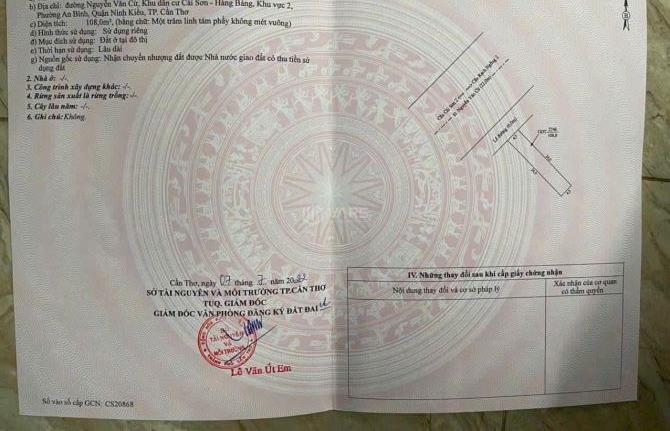 b) Địa chỉ: đường Nguyễn Văn Cừ, Khu dân cư Cái Sơn - Hàng Bàng, Khu vực 2,
Phường An Bình, Quận Ninh Kiều, TP. Cần Thơ
c) Diện tích: 108,0m², (bằng chữ: Một trăm linh tám phẩy không mét vuông)
d) Hình thức sử dụng: Sử dụng riêng
đ) Mục đích sử dụng: Đất ở tại đô thị
e) Thời hạn sử dụng: Lâu dài
g) Nguồn gốc sử dụng: Nhận chuyển nhượng đất được Nhà nước giao đất có thu tiền sử
dụng đất
2. Nhà ở: -/-.
3. Công trình xây dựng khác: -/-.
4. Rừng sản xuất là rừng trồng: -/-.
5. Cây lâu năm: -/-.
6. Ghi chú: Không.
Cần Thơ, ngày 07 tháng 7 năm 2022
SỞ TÀI NGUYÊN VÀ MÔI TRƯỜNG TP.CẦN THƠ
TUQ. GIÁM ĐỐC
GIÁM ĐỐC VĂN PHÒNG ĐĂNG KÝ ĐẤT ĐAI
SỞ
TÀI NGUYÊN
VÀ
MÔI TRƯỜNG
Lê Văn Út Em
Số vào sổ cấp GCN: CS20868
IV. Những thay đổi sau khi cấp giấy chứng nhận
Nội dung thay đổi và cơ sở pháp lý
Xác nhận của cơ quan
có thẩm quyền